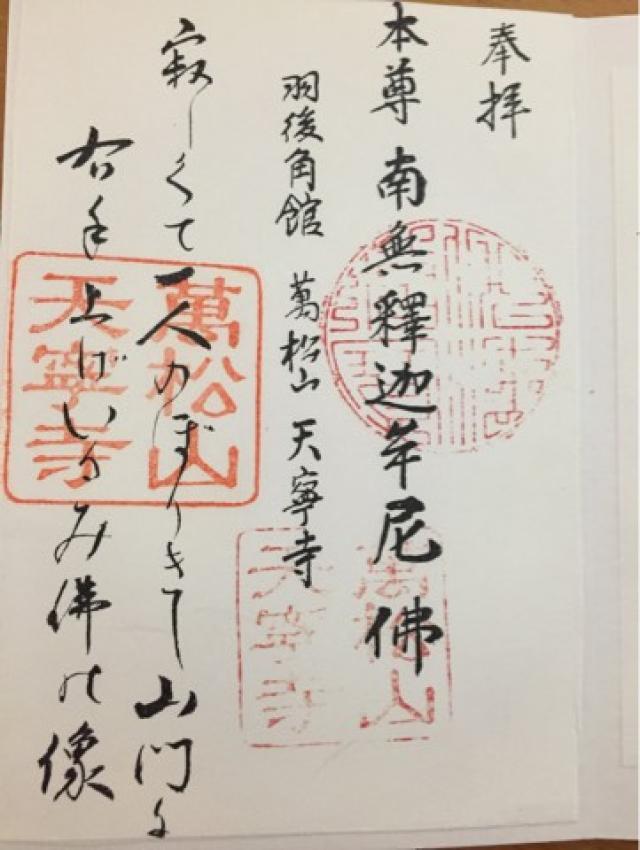 奉拝
本尊 南無釋迦牟尼佛
羽後角館 萬松山 天寧寺
寂しくて一人のぼりきて山門に
右手上げいるみ佛の像
萬松山
天寧寺
萬松山
天寧寺